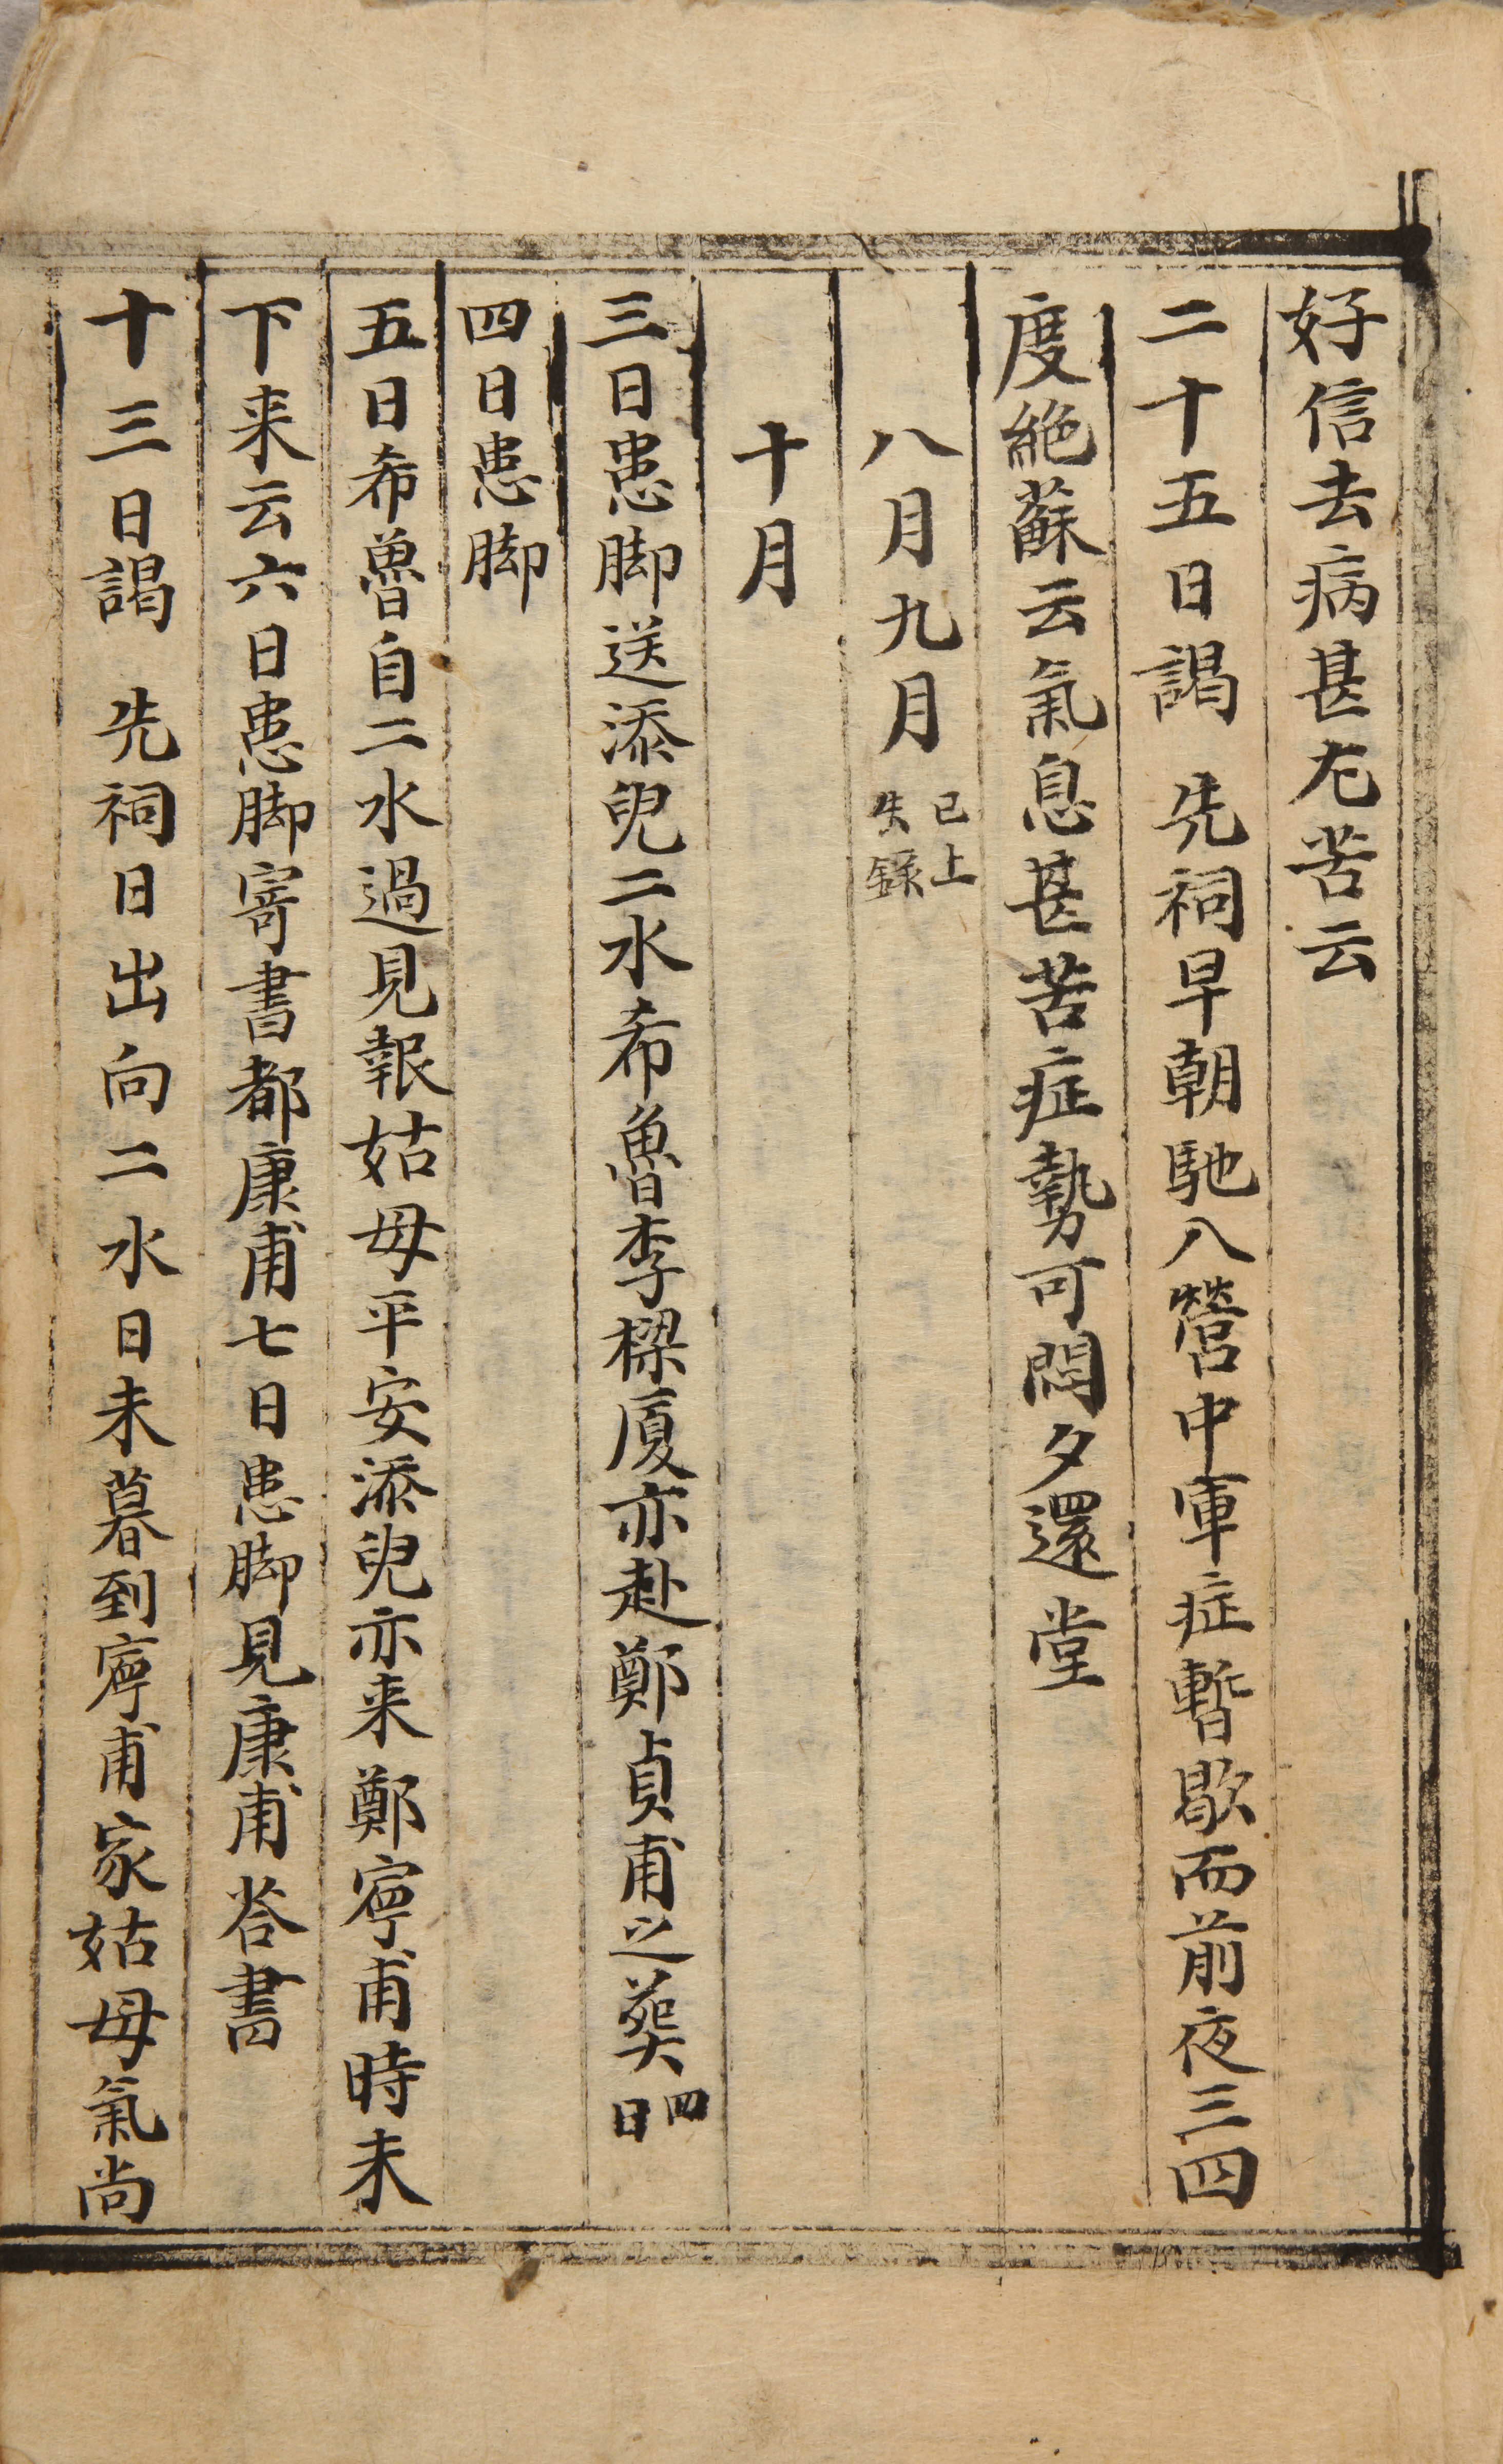 好信去病甚尢苦云
二十五日謁　先祠早朝馳入營中軍症暫歇而前夜三四
度絶蘇云氣息甚苦症勢可悶夕還堂
八月九月已上失錄
十月
三日患脚送添兒二水希魯李樑厦亦赴鄭貞甫之葬四日
四日患脚
五日希魯自二水過見報姑母平安添兒亦来鄭寧甫時未
下来云六日患脚寄書都康甫七日患脚見康甫荅書
十三日謁　先祠日出向二水日未暮到寧甫家姑母氣尚